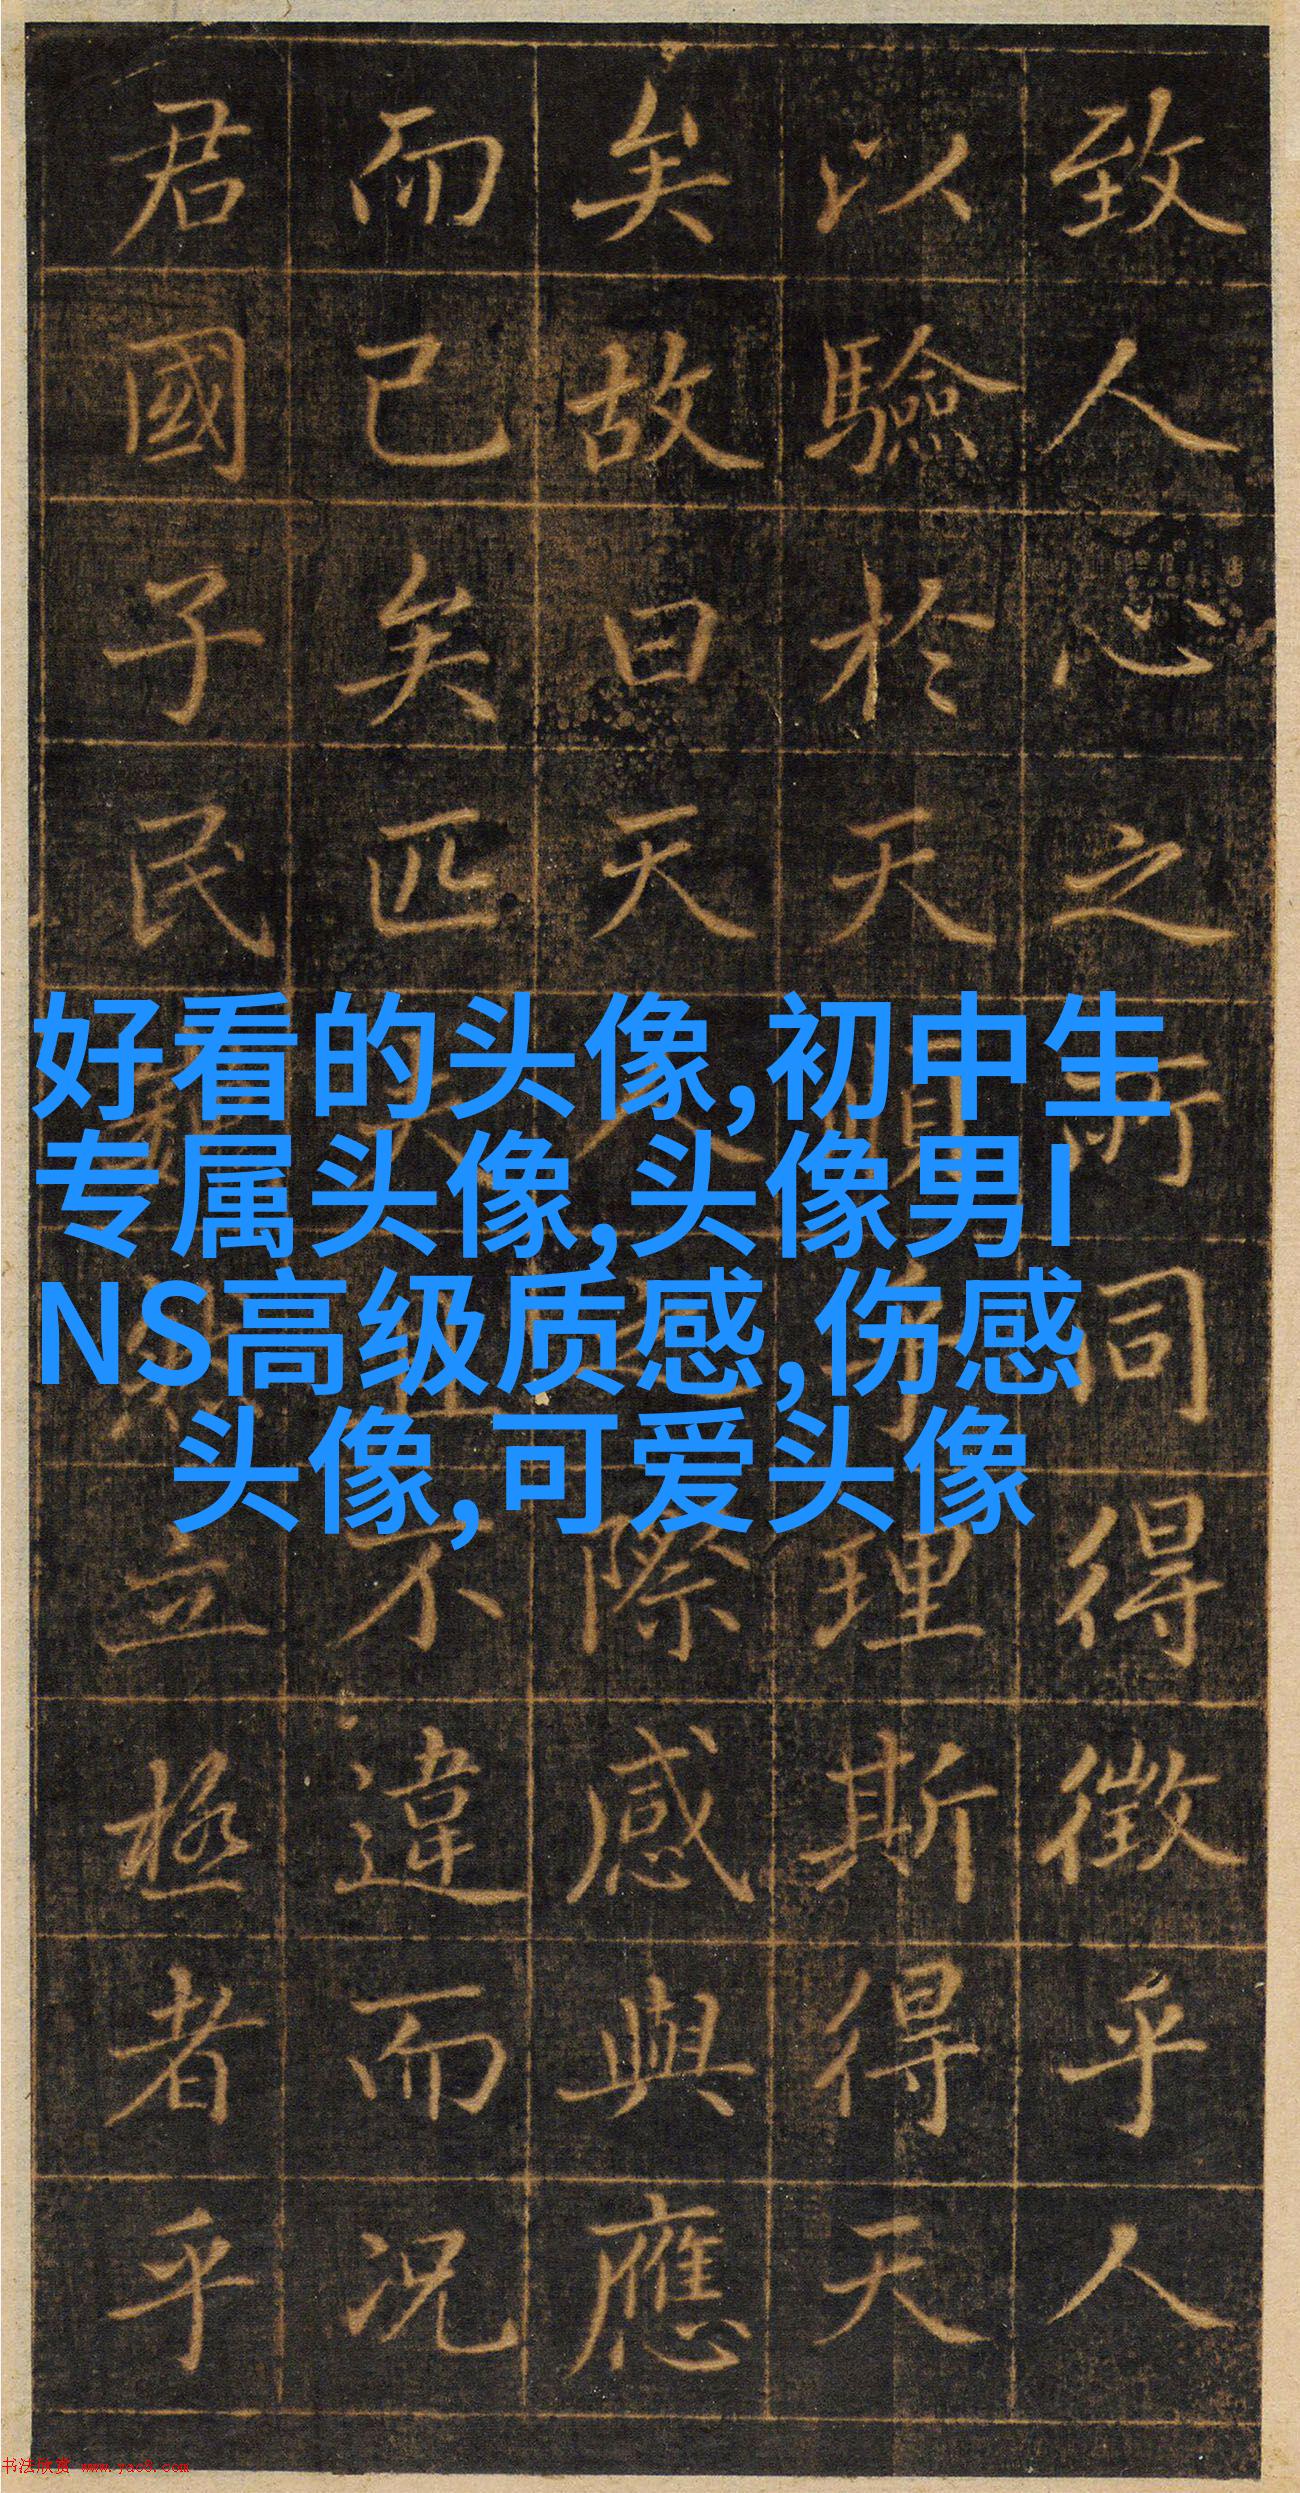 致人心之所同得徵乎人
以驗於天順乎理斯得天
矣故曰天人之際感與應
而已矣匹夫且不違而况
君國子民立極者乎
好看的头像,初中生
专属头像,头像男I
NS高级质感,伤感
头像,可爱头像
书法欣赏 www.yac8.com